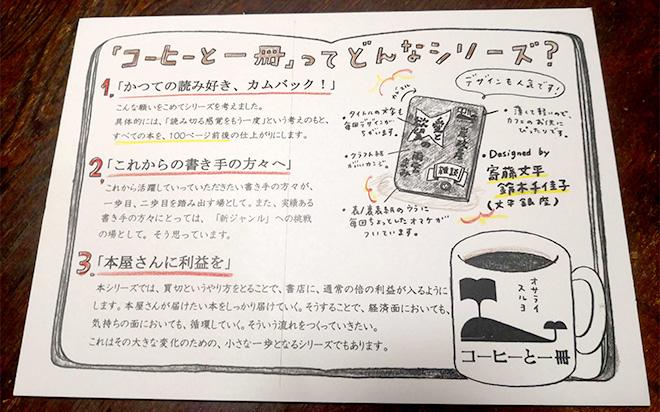 「コーヒーと一冊」ってどんなシリーズ？
1.「かつての読み好き、カムバック！」
こんな願いをこめてシリーズを考えました。
具体的には、「読み切る感覚をもう一度」という考えのもと、
すべての本を、100ページ前後の仕上がりにします。
2「これからの書き手の方々へ」
これから活躍していっていただきたい書き手の方々が、
一歩目、二歩目を踏み出す場として。また、実績ある
書き手の方々にとっては、「新ジャンル」への挑戦
の場として。そう思っています。
3.「本屋さんに利益を」
本シリーズでは、買切というやり方をとることで、書店に、通常の倍の利益が入るように
します。本屋さんが届けたい本をしっかり届けていく。そうすることで、経済面においても、
気持ちの面においても、循環していく。そういう流れをつくっていきたい。
これはその大きな変化のための、小さな一歩となるシリーズでもあります。
デザインも人気です！
・タイトルの文字も
毎回デザインが
ちがいます。
・クラフト紙
・表/裏表紙のウラに
毎回ちょっとしたオマケが
ついています。
愛と
欲望の
雑談
・薄くて軽いので、
カフェのお供に
ぴったりです。
・Designed by
寄藤文平
鈴木千佳子
(文平銀座)
オサライ
スルヨ
コーヒーと一冊